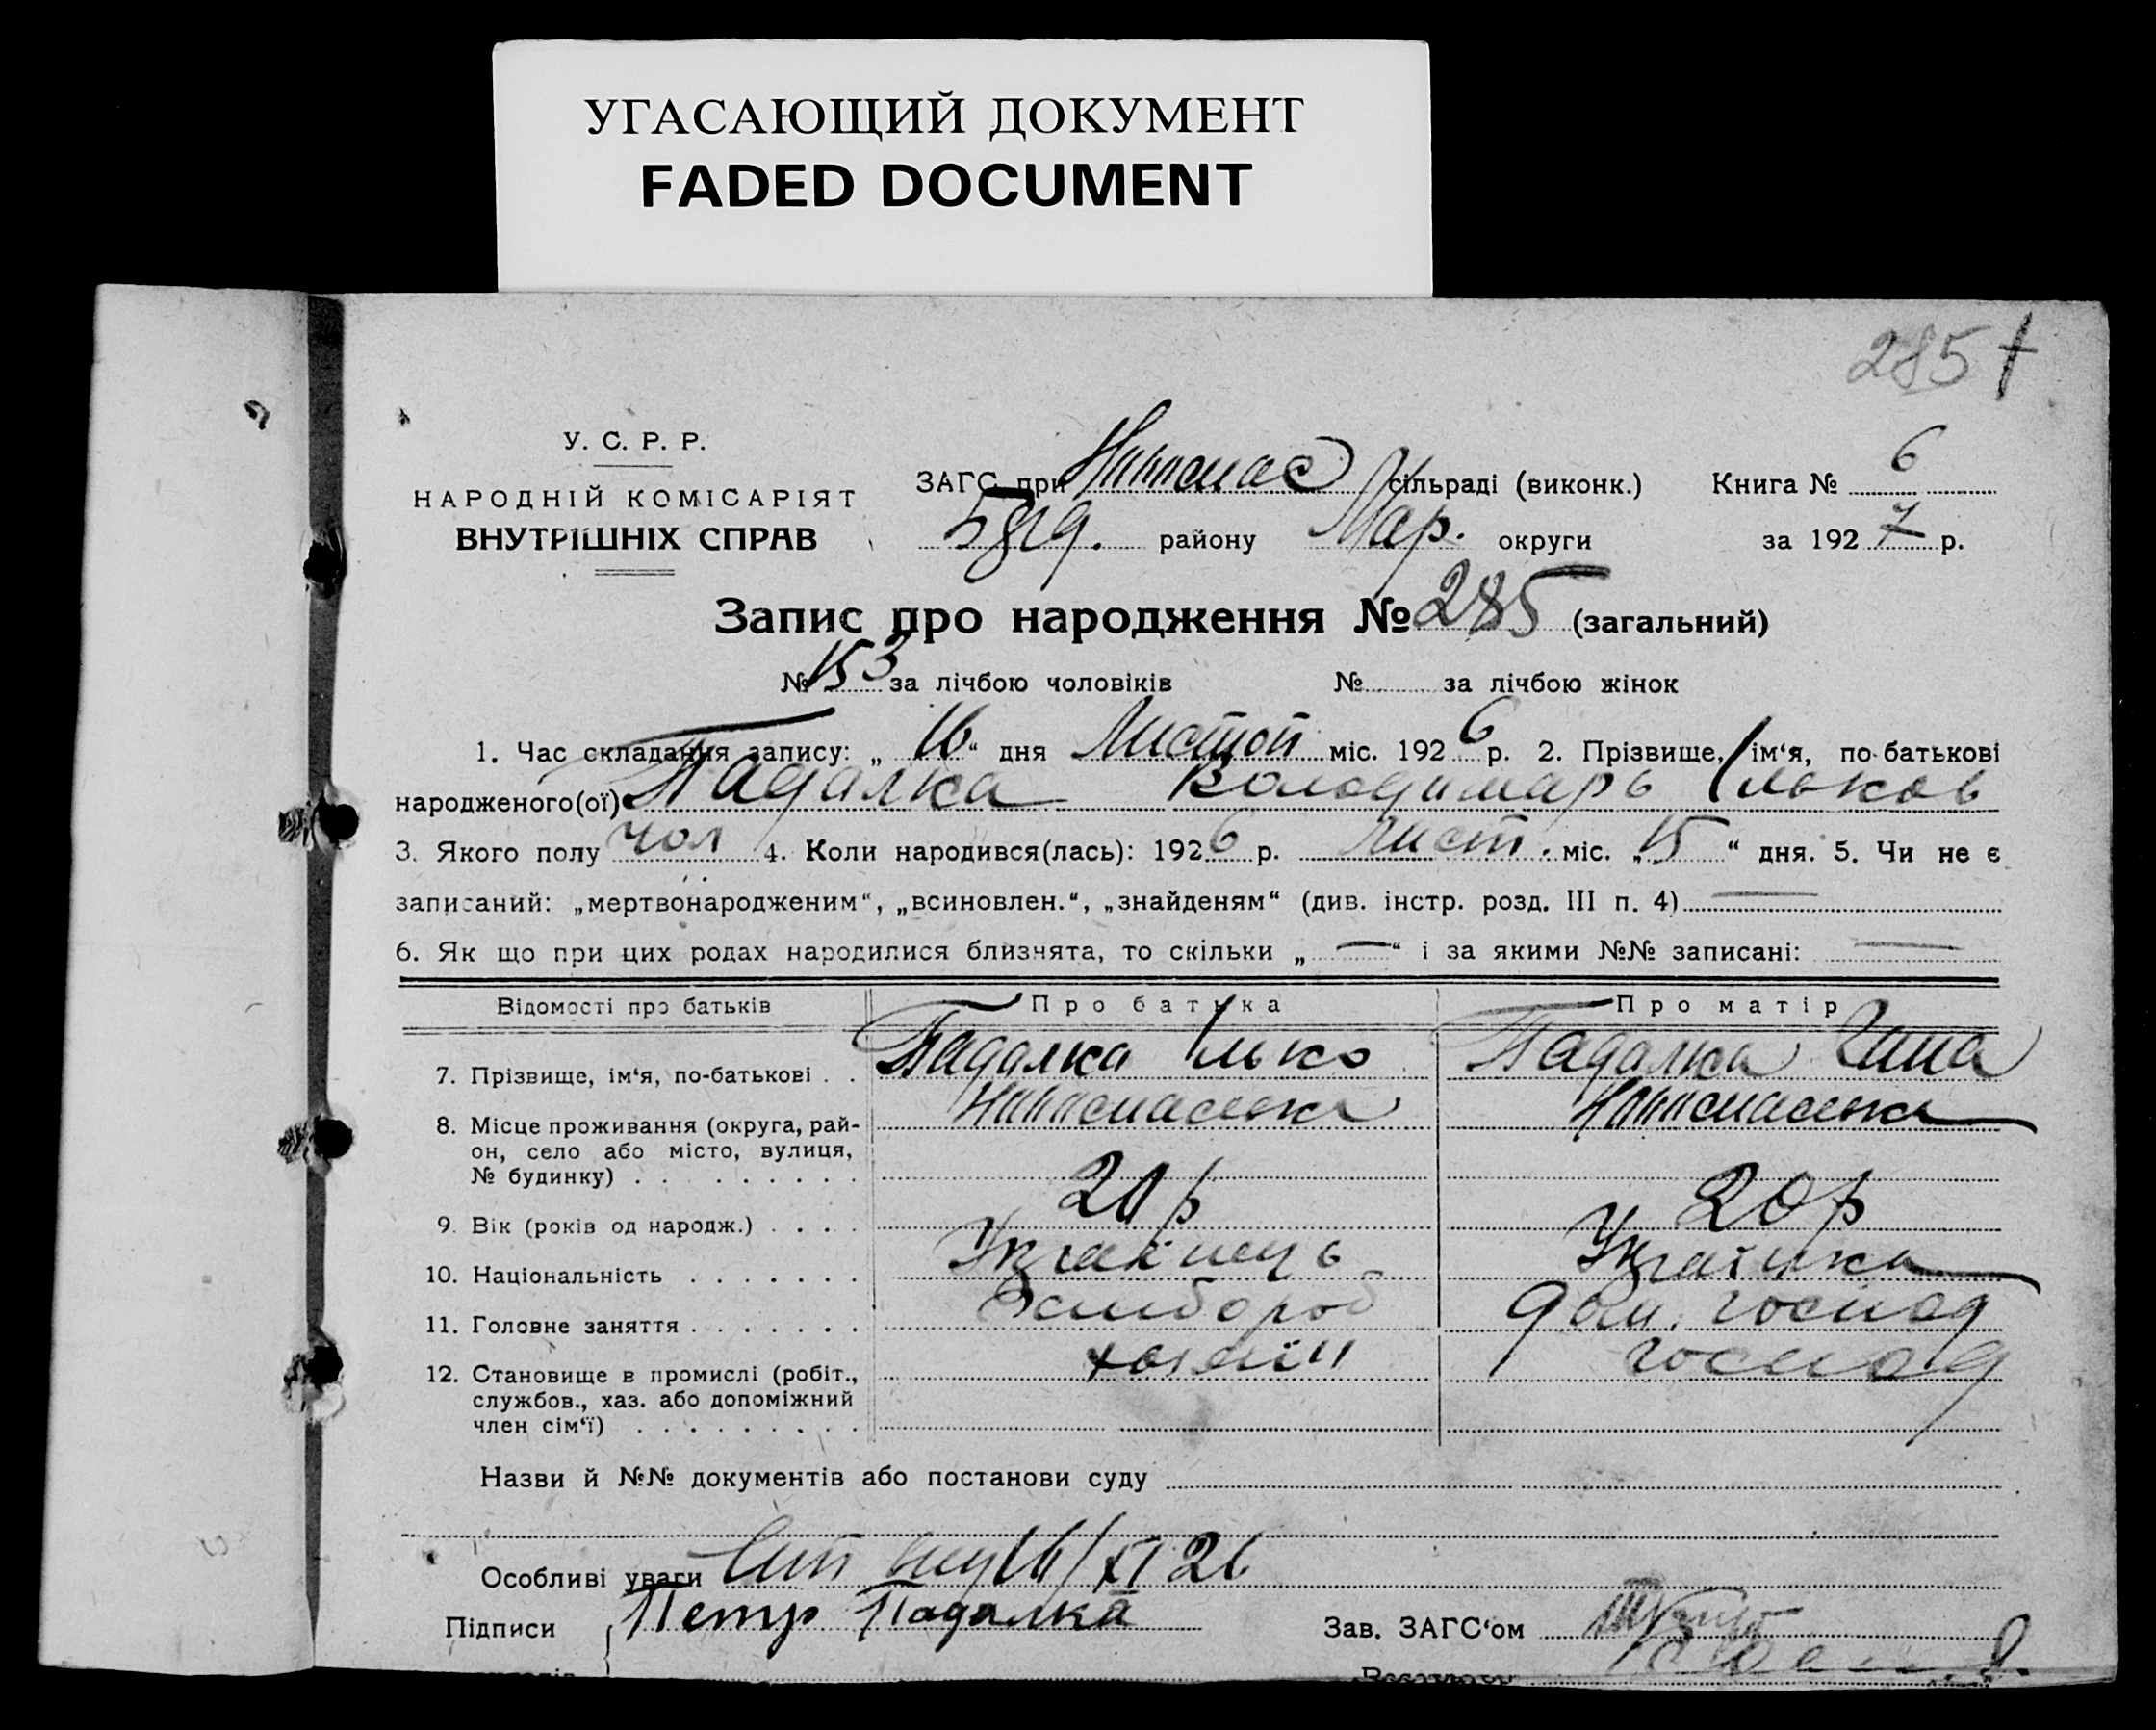 УГАСАЮЩИЙ ДОКУМЕНТ
FADED DOCUMENT
285 †
У. С. Р. Р.
НАРОДНІЙ КОМІСАРІЯТ
ВНУТРІШНІХ СПРАВ
ЗАГС при сільраді (виконк.)
району Мар. округи
Книга № 6
за 1927 р.
Запис про народження № 285 (загальний)
№ 153 за лічбою чоловіків № за лічбою жінок
1. Час складання запису: „ 16 “ дня Листоп міс. 1926 р. 2. Прізвище, ім‘я, по-батькові
народженого(ої) Падалка Володимарь Ільков
3. Якого полу чол 4. Коли народився(лась): 1926 р. лист. міс. „ 15 “ дня. 5. Чи не є
записаний: „мертвонародженим“, „всиновлен.“, „знайденям“ (див. інстр. розд. III п. 4) —
6. Як що при цих родах народилися близнята, то скільки „ — “ і за якими №№ записані: —
Відомості про батьків Про батька Про матір
7. Прізвище, ім‘я, по-батькові . . Падалка Ілько Падалка Гана
8. Місце проживання (округа, рай-
он, село або місто, вулиця,
№ будинку) . . . . . . . . .
9. Вік (років од народж.) . . . . 20 р 20 р
10. Національність . . . . . . . Українець Українка
11. Головне заняття . . . . . . . дом. господ
12. Становище в промислі (робіт., хазяїн господ
службов., хаз. або допоміжний
член сім‘ї) . . . . . . . . .
Назви й №№ документів або постанови суду
Особливі уваги 16/XI 26
Підписи Петр Падалка Зав. ЗАГС‘ом